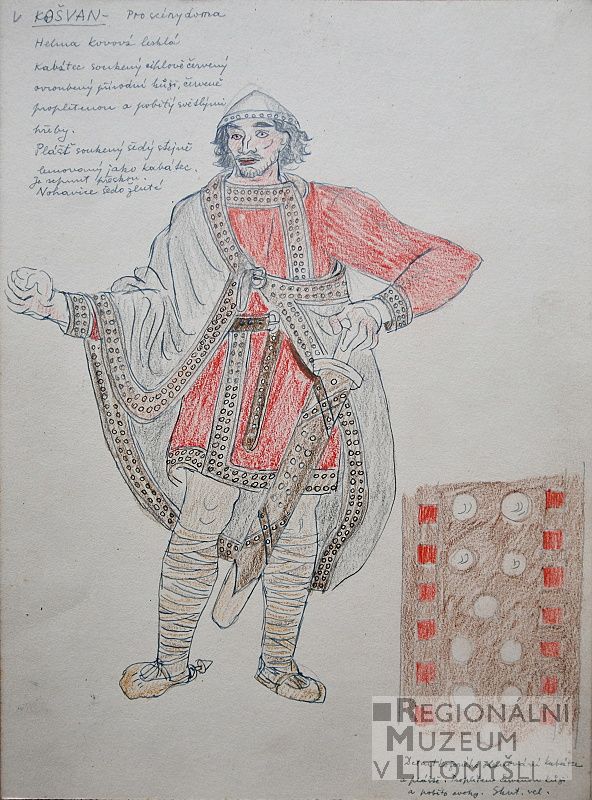 V KOŠVAN - Pro scény doma
Helma kovová lesklá
Kabátec soukenný cihlově červený
ovroubený přírodní kůží, červeně
propletenou a pobitý světlými
hřeby.
Plášť soukenný šedý stejně
lemovaný jako kabátec.
Je sepnut sponkou.
Nohavice šedožluté
REGIONÁLNÍ
MUZEUM
V LITOMYŠLI
kabátce
a pláště. Propleteno červenou kůží
a pobito cvoky. Skut. vel.